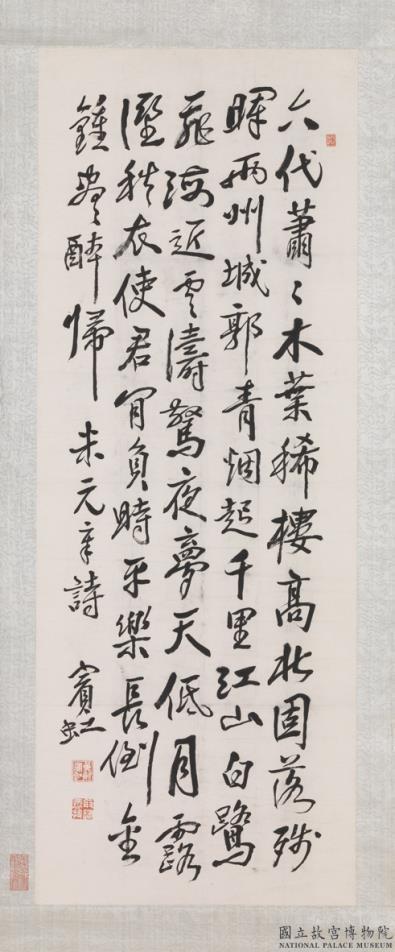 六代蕭〻木葉稀樓高北固落殘
暉兩州城郭青烟起千里江山白鷺
飛海近雲濤驚夜夢天低月露
溼秋衣使君肎負時平樂長倒金
鍾盡醉歸 米元章詩 賓虹
國立故宮博物院
NATIONAL PALACE MUSEUM